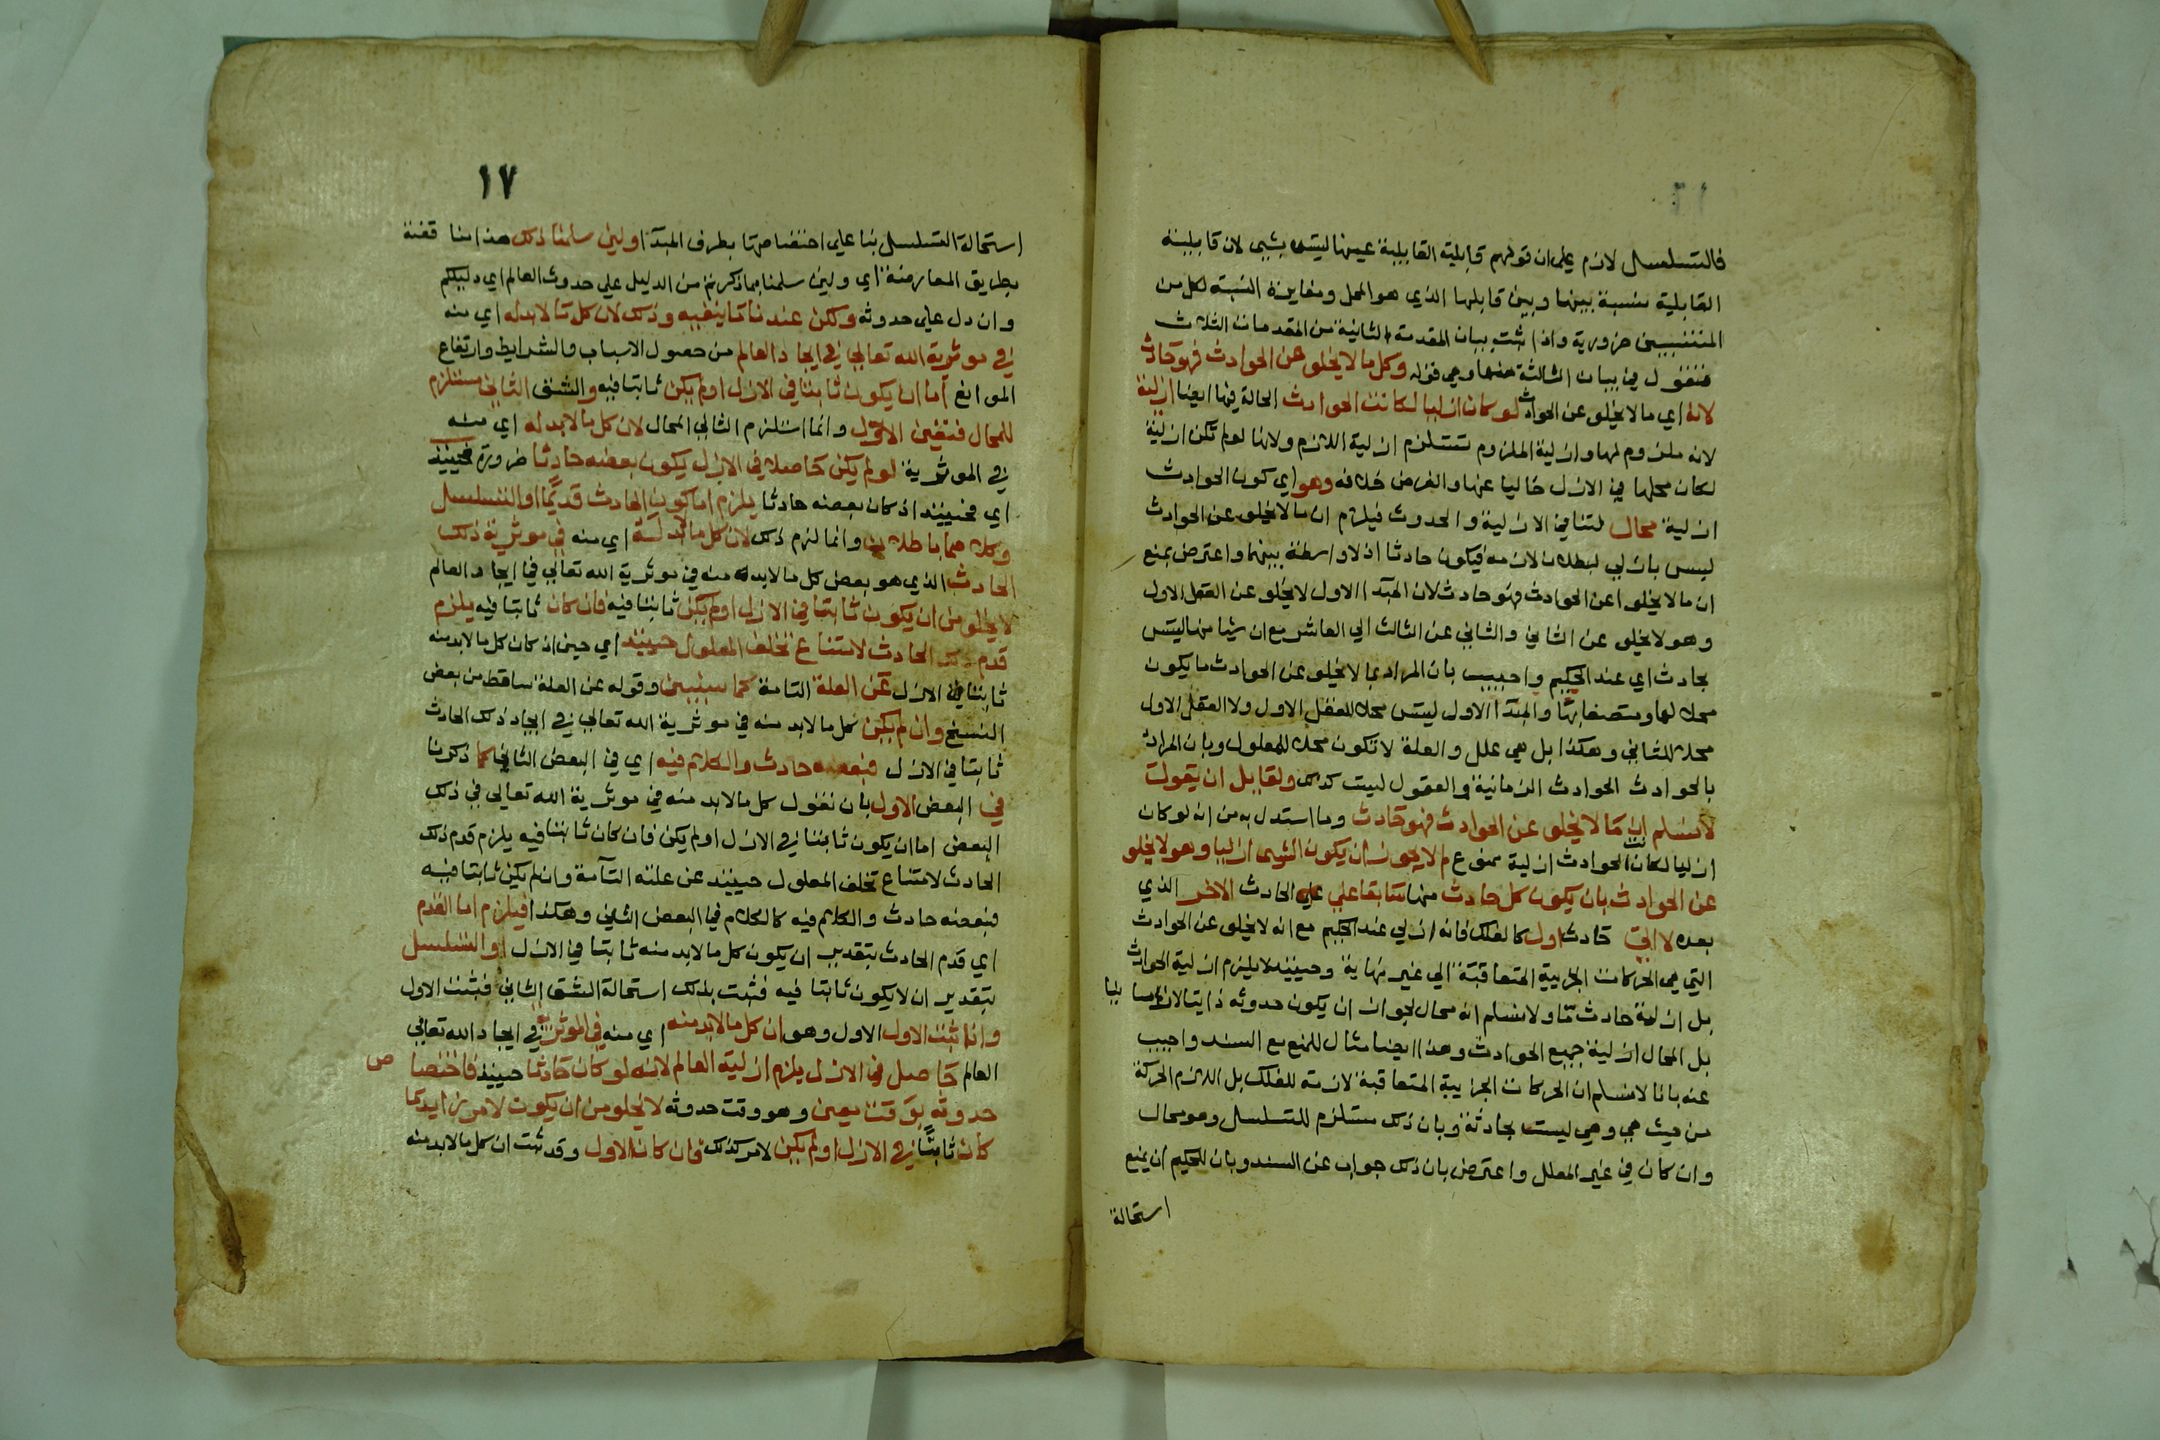 فالتسلسل لازم على ان قولهم قابلية القابلية عينها ليس بشى لان قابلية
القابلية نسبة بينها وبين قابلها الذي هو المحل ومغايرة النسبة لكل من
المنتسبين ضرورية واذا ثبت بيان المقدمة الثانية من المقدمات الثلاث
فنقول في بيان الثالثة منها وهي قوله وكل ما لا يخلو عن الحوادث فهو حادث
لانه اي ما لا يخلو عن الحوادث لو كان ازليا لكانت الحوادث الحالة فيها ايضا ازلية
لانه ملزوم لها وازلية الملزوم تستلزم ازلية اللازم ولانها لو لم تكن ازلية
لكان محلها في الازل خاليا عنها والفرض خلافه وهو اي كون الحوادث
ازلية محال لتنافي الازلية والحدوث فيلزم ان ما لا يخلو عن الحوادث
ليس بازلي لبطلان لازمه فيكون حادثا اذ لا واسطة بينهما واعترض بمنع
ان ما لا يخلوا عن الحوادث فهو حادث لان المبدا الاول لا يخلو عن العقل الاول
وهو لا يخلو عن الثاني والثاني عن الثالث الي العاشر مع ان شيا منها ليس
بحادث اي عند الحكيم واجيب بان المراد بما لا يخلو عن الحوادث ما يكون
محلا لها ومتصفا بها والمبدا الاول ليس محلا للعقل الاول ولا العقل الاول
محلا للثاني وهكذا بل هي علل والعلة لا تكون محلا للمعلول وبان المراد
بالحوادث الحوادث الزمانية والعقول ليست كذلك ولقابل ان يقول
لا نسلم ان ما لا يخلو عن الحوادث فهو حادث وما استدل به من انه لو كان
ازليا لكانت الحوادث ازلية ممنوع لم لا يجوز ان يكون الشى ازليا وهو لا يخلو
عن الحوادث بان يكون كل حادث منها سابقا علي علي الحادث الاخر الذي
بعده لا الي حادث اول كالفلك فانه ازلي عند الحكيم مع انه لا يخلو عن الحوادث
التي هي الحركات الجزيية المتعاقبة الي غير نهاية وحينيذ لا يلزم ازلية الحوادث
بل ازلية حادث ما ولا نسلم انه محال لجواز ان يكون حدوثه ذاتيا لا زمانيا
بل المحال ازلية جميع الحوادث وهذا ايضا مثال للمنع مع السند واجيب
عنه بانا لا نسلم ان الحركات الجزيية المتعاقبة لازمة للفلك بل اللازم الحركة
من حيث هي وهي ليست بحادثة وبان ذلك مستلزم للتسلسل وهو محال
وان كان في غير العلل واعترض بان ذلك جواب عن السند وبان للحكيم ان يمنع
استحالة
١٧
استحالة التسلسل بنا علي اختصاصها بطرف المبدا ولين سلمنا ذلك هذا مناقضة
بطريق المعارضة اي ولين سلمنا ما ذكرتم من الدليل علي حدوث العالم اي دليلكم
وان دل علي حدوثه ولكن عندنا ما ينفيه وذلك لان كل ما لا بد له اي منه
في موثرية الله تعالي في ايجاد العالم من حصول الاسباب والشرايط وارتفاع
الموانع اما ان يكون ثابتا في الازل او لم يكن ثابتا فيه والشق الثاني مستلزم
للمحال فتعين الاول وانما استلزم الثاني المحال لان كل ما لا بد له اي منه
في الموثرية لو لم يكن حاصلا في الازل يكون بعضه حادثا ضرورة فحينيذ
اي فحينيذ اذ كان بعضه حادثا يلزم اما كون الحادث قديما او التسلسل
وكلاهما باطلان وانما لزم ذلك لان كل ما لا بد له اي منه في موثرية ذلك
الحادث الذي هو بعض كل ما لا بد له منه في موثرية الله تعالي في ايجاد العالم
لا يخلو من ان يكون ثابتا في الازل او لم يكن ثابتا فيه فان كان ثابتا فيه يلزم
قدم ذلك الحادث لامتناع تخلف المعلول حينيذ اي حين اذ كان كل ما لا بد منه
ثابتا في الازل عن العلة التامة كما سنبين وقوله عن العلة ساقط من بعض
النسخ وان لم يكن كل ما لا بد منه في موثرية الله تعالي في ايجاد ذلك الحادث
ثابتا في الازل فبعضه حادث والكلام فيه اي في البعض الثاني كما ذكرنا
في البعض الاول بان نقول كل ما لا بد منه في موثرية الله تعالي في ذلك
البعض اما ان يكون ثابتا في الازل او لم يكن فان كان ثابتا فيه يلزم قدم ذلك
الحادث لامتناع تخلف المعلول حينيذ عن علته التآمة وان لم يكن ثابتا فيه
فبعضه حادث والكلام فيه كالكلام في البعض الثاني وهكذا فيلزم اما القدم
اي قدم الحادث بتقدير ان يكون كل ما لا بد منه ثابتا في الازل او التسلسل
بتقدير ان لا يكون ثابتا فيه فثبت بذلك استحالة الشق الثاني فثبت الاول
واذا ثبت الاول الاول وهو ان كل ما لا بد منه اي منه في الموثرية في ايجاد الله تعالي
العالم حاصل في الازل يلزم ازلية العالم لانه لو كان حادثا حينيذ فاختصاص
حدوثه بوقت معين وهو وقت حدوثه لا يخلو من ان يكون لامر زايد كما
كان ثابتا في الازل او لم يكن لامر كذلك فان كان الاول وقد ثبت ان كل ما لا بد منه